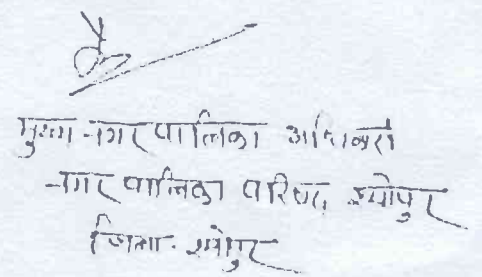 मुख्य नगर पालिका अधिकारी
नगर पालिका परिषद श्योपुर
जिला - श्योपुर